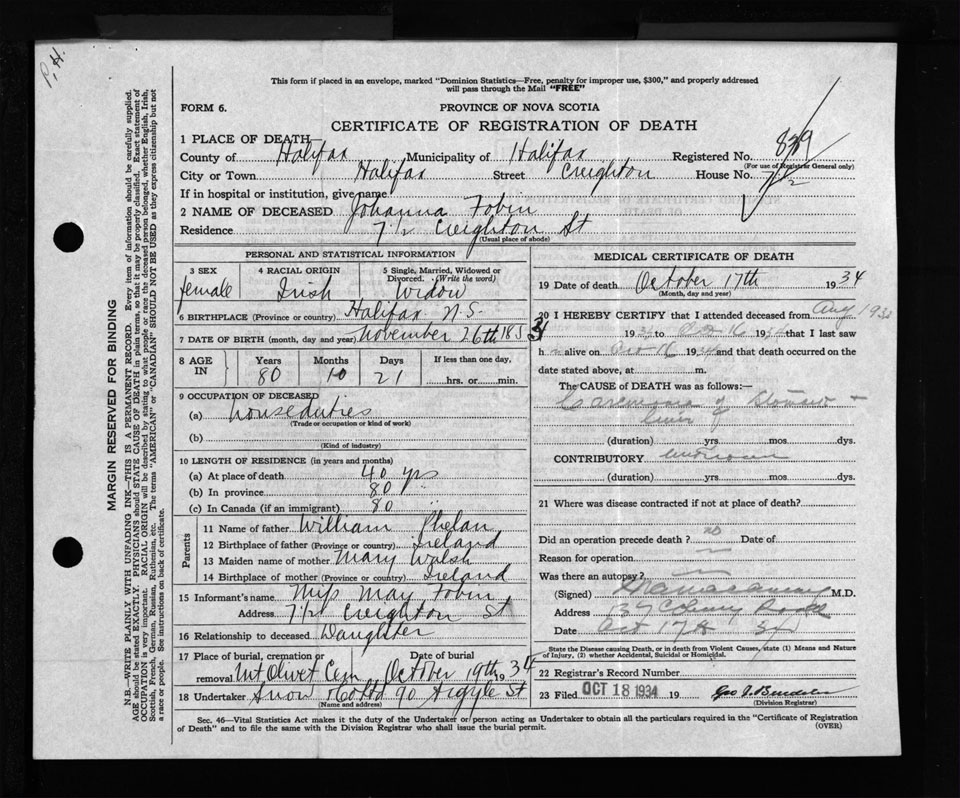 P. H.
This form if placed in an envelope, marked "Dominion Statistics—Free, penalty for improper use, $300," and properly addressed
will pass through the Mail "FREE"
FORM 6.
PROVINCE OF NOVA SCOTIA
CERTIFICATE OF REGISTRATION OF DEATH
1 PLACE OF DEATH—
County of Halifax Municipality of Halifax Registered No. 879
(For use of Registrar General only)
City or Town Halifax Street Creighton House No. 7 1/2
If in hospital or institution, give name
2 NAME OF DECEASED Johanna Tobin
Residence 7 1/2 Creighton St
(Usual place of abode)
PERSONAL AND STATISTICAL INFORMATION
3 SEX 4 RACIAL ORIGIN 5 Single, Married, Widowed or Divorced. (Write the word)
female Irish Widow
6 BIRTHPLACE (Province or country) Halifax N.S.
7 DATE OF BIRTH (month, day and year) November 26th 1853
8 AGE IN Years Months Days If less than one day,
80 10 21 hrs. or min.
9 OCCUPATION OF DECEASED
(a) houseduties
(Trade or occupation or kind of work)
(b)
(Kind of industry)
10 LENGTH OF RESIDENCE (in years and months)
(a) At place of death 40 yrs
(b) In province 80 "
(c) In Canada (if an immigrant) 80 "
Parents
11 Name of father William Phelan
12 Birthplace of father (Province or country) Ireland
13 Maiden name of mother Mary Walsh
14 Birthplace of mother (Province or country) Ireland
15 Informant's name Miss May Tobin
Address 7 1/2 Creighton St
16 Relationship to deceased Daughter
17 Place of burial, cremation or removal Date of burial
Mt. Olivet Cem October 19th 1934
18 Undertaker Snow & Co Ltd 90 Argyle St
(Name and address)
MEDICAL CERTIFICATE OF DEATH
19 Date of death October 17th 1934
(Month, day and year)
20 I HEREBY CERTIFY that I attended deceased from Aug
1934 to Oct 16 1934 that I last saw
h alive on Oct 16 1934 and that death occurred on the
date stated above, at m.
The CAUSE OF DEATH was as follows:—
Carcinoma of Stomach +
liver
(duration) yrs. mos. dys.
CONTRIBUTORY unknown
(duration) yrs. mos. dys.
21 Where was disease contracted if not at place of death?
Did an operation precede death? no Date of
Reason for operation
Was there an autopsy?
(Signed) M.D.
Address
Date Oct 17th 34
State the Disease causing Death, or in Death from Violent Causes, state (1) Means and Nature
of Injury, (2) whether Accidental, Suicidal or Homicidal.
22 Registrar's Record Number
23 Filed OCT 18 1934 19
(Division Registrar)
Sec. 46—Vital Statistics Act makes it the duty of the Undertaker or person acting as Undertaker to obtain all the particulars required in the "Certificate of Registration
of Death" and to file the same with the Division Registrar who shall issue the burial permit.
(OVER)
MARGIN RESERVED FOR BINDING
N.B.—WRITE PLAINLY WITH UNFADING INK—THIS IS A PERMANENT RECORD. Every item of information should be carefully supplied.
AGE should be stated EXACTLY. PHYSICIANS should STATE CAUSE OF DEATH in plain terms, so that it may be properly classified. Exact statement of
OCCUPATION is very important. RACIAL ORIGIN will be described by stating to what people or race the deceased person belonged, whether English, Irish,
Scottish, French, German, Russian, Ruthenian, etc. The terms "AMERICAN" or "CANADIAN" SHOULD NOT BE USED as they express citizenship but not
a race or people. See instructions on back of certificate.